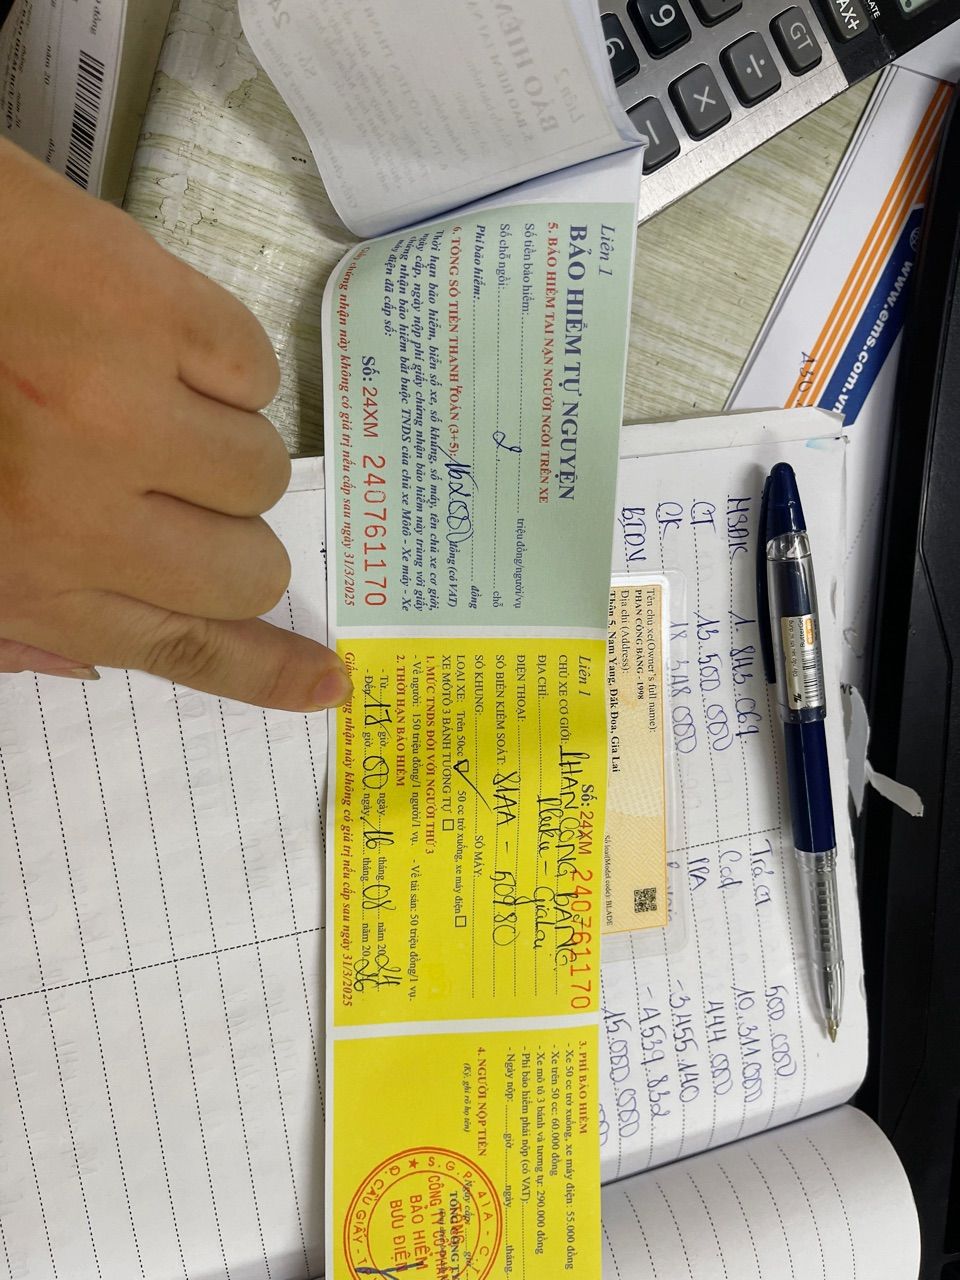 Liên 1
BẢO HIỂM TỰ NGUYỆN
5. BẢO HIỂM TAI NẠN NGƯỜI NGỒI TRÊN XE
Số tiền bảo hiểm: triệu đồng/người/vụ
Số chỗ ngồi: 2 chỗ
Phí bảo hiểm: đồng
6. TỔNG SỐ TIỀN THANH TOÁN (3+5): đồng (có VAT)
Thời hạn bảo hiểm, biển số xe, số khung, số máy, tên chủ xe cơ giới,
ngày cấp, ngày nộp phí giấy chứng nhận bảo hiểm này trùng với giấy
chứng nhận bảo hiểm bắt buộc TNDS của chủ xe Môtô - Xe máy - Xe
máy điện đã cấp số:
Số: 24XM 240761170
chứng nhận này không có giá trị nếu cấp sau ngày 31/3/2025
Liên 1
Số: 24XM 240761170
CHỦ XE CƠ GIỚI: PHAN CÔNG BẰNG
ĐỊA CHỈ: Pleiku - Gia Lai
ĐIỆN THOẠI:
SỐ BIỂN KIỂM SOÁT: 81AA - 509.80
SỐ KHUNG: SỐ MÁY:
LOẠI XE: Trên 50cc 50 cc trở xuống, xe máy điện
XE MÔTÔ 3 BÁNH TƯƠNG TỰ
1. MỨC TNDS ĐỐI VỚI NGƯỜI THỨ 3
- Về người: 150 triệu đồng/1 người/1 vụ. - Về tài sản: 50 triệu đồng/1 vụ.
2. THỜI HẠN BẢO HIỂM
- Từ 17 giờ 00 ngày 16 tháng 08 năm 2024
- Đến giờ ngày tháng năm 2026
Giấy chứng nhận này không có giá trị nếu cấp sau ngày 31/3/2025
3. PHÍ BẢO HIỂM
- Xe 50 cc trở xuống, xe máy điện : 55.000 đồng
- Xe trên 50 cc: 60.000 đồng
- Xe mô tô 3 bánh và tương tự: 290.000 đồng
- Phí bảo hiểm phải nộp (có VAT):
- Ngày nộp: giờ ngày tháng
4. NGƯỜI NỘP TIỀN
(Ký, ghi rõ họ tên)
Ngày cấp giờ
TỔNG CÔNG TY
CÔNG TY CỔ PHẦN
BẢO HIỂM
BƯU ĐIỆN
CẦU GIẤY
Tên chủ xe(Owner's full name):
PHAN CÔNG BẰNG - 1998
Địa chỉ (Address):
Thôn 5, Nam Yang, Đăk Đoa, Gia Lai
Số loại(Model code): BLADE
www.ems.com.vn
CT 13.500.000
CK 18.348.000
BIDV
500.000
Cod 10.311.000
PPA 444.000
- 3.455.140
- 4.539.832
15.000.000
GT
MAX+
9
6
÷
×
−
BẢO HIỂM BƯU ĐIỆN